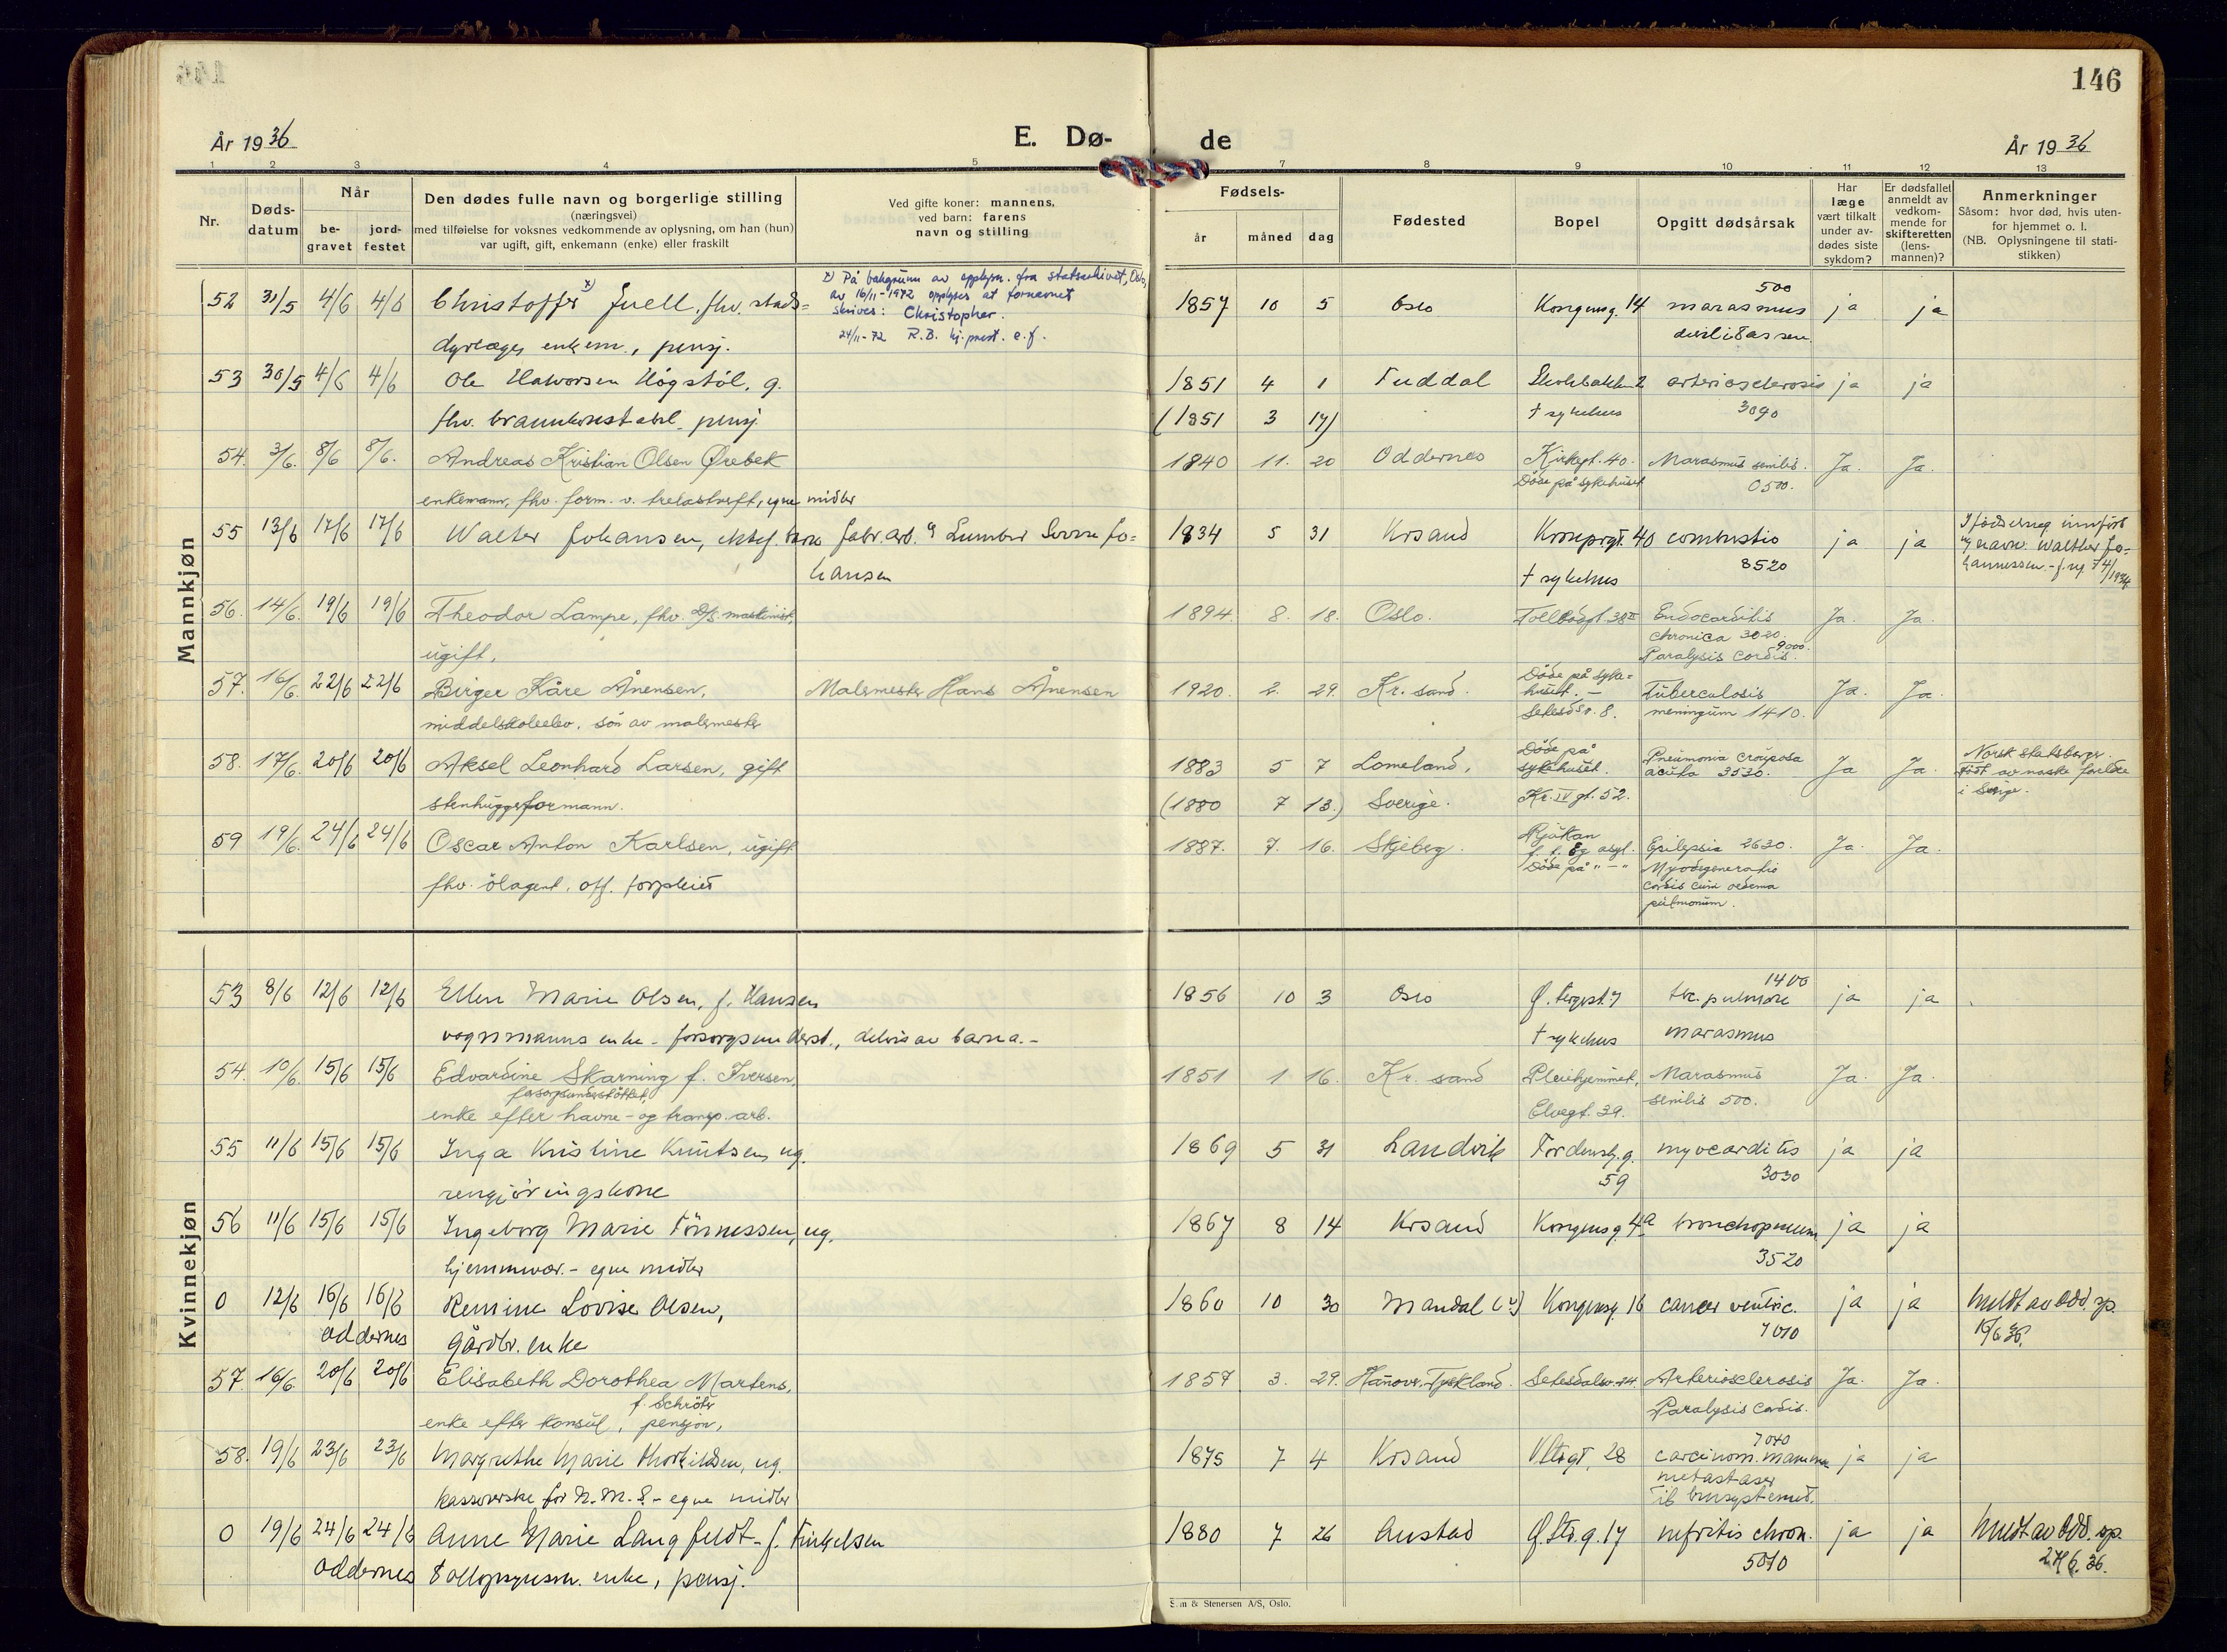 146
År 1936
E. Dø-
de
År 1936
1 2 3 4 5 7 8 9 10 11 12 13
Nr.
Døds-
datum
Når
be-
gravet
jord-
festet
Den dødes fulle navn og borgerlige stilling
(næringsvei)
med tilføielse for voksnes vedkommende av oplysning, om han (hun)
var ugift, gift, enkemann (enke) eller fraskilt
Ved gifte koner: mannens,
ved barn: farens
navn og stilling
Fødsels-
år måned dag
Fødested
Bopel
Opgitt dødsårsak
Har
læge
vært tilkalt
under av-
dødes siste
sykdom?
Er dødsfallet
anmeldt av
vedkom-
mende for
skifteretten
(lens-
mannen)?
Anmerkninger
Såsom: hvor død, hvis uten-
for hjemmet o. l.
(NB. Oplysningene til stati-
stikken)
Mannkjøn
52 31/5 4/6 4/6 Christoffer x) Juell, fhv. stads= 1857 10 5 Oslo Kongensg. 14 marasmus 500 ja ja
dyrlæge, enkem., pensj.
x) På bakgrunn av opplysn. fra statsarkivet, Oslo,
av 16/11-1972 opplyses at fornavnet
skrives: Christopher.
24/11-72 R.B. hj.prest. e.f.
53 30/5 4/6 4/6 Ole Halvorsen Høgstøl, g. 1851 4 1 Tuddal arteriosclerosis ja ja
fhv. pensj. (1851 3 17) † sykehus 3090
54. 3/6. 8/6 8/6. Andreas Kristian Olsen Ørebek 1840 11. 20 Oddernes Kirkegt. 40. Marasmus senilis. Ja. Ja.
enkemann, fhv. form. v. trelastdrift, egne midler Døde på sykehuset 0500.
55 13/6 17/6 17/6 Walter Johansen, ektef. barn fabr.arb. Sverre Jo= 1934 5 31 Krsand 40 combustio ja ja
hansen † sykehus 8520
navn: Walther Jo=
hannessen.
56. 14/6. 19/6 19/6 Theodor Lampe, fhv. D/S. maskinist, 1894. 8. 18. Oslo. Tollbodgt. 38 Endocarditis Ja. Ja.
ugift, chronica 3020.
Paralysis cordis. 9000.
57. 16/6. 22/6 22/6 Birger Kåre Ånensen, Malermester Hans Ånensen 1920. 2. 29. Kr. sand. Døde på syke=
huset. - Tuberculosis Ja. Ja.
middelskoleelev, søn av malermester Setesdsv. 8. meningum 1410.
58. 17/6. 20/6 20/6 Aksel Leonhard Larsen, gift 1883 5 7 Lomeland, Døde på
sykehuset. Pneumonia crouposa
acuta 3530. Ja Ja. Norsk statsborger.
født av norske foreldre
i Sverige.
stenhuggerformann. (1880 7 13.) Sverige. Kr. IV gt. 52.
59 19/6. 24/6 24/6 Oscar Anton Karlsen, ugift 1887. 7. 16. Skjeberg. Rjukan
f. t. Eg asyl. Epilepsia 2630. Ja. Ja.
fhv. ølagent. off. forpleiet Døde på " - " Myodegeneratio
cordis cum oedema
pulmonum.
Kvinnekjøn
53 8/6 12/6 12/6 Ellen Marie Olsen, f. Hansen 1856 10 3 Oslo tbc. pulmore 1400 ja ja
vognmanns enke - forsorgsunderst., delvis av barna. - † sykehus marasmus
54. 10/6. 15/6 15/6 Edvardine Skarning f. Iversen, 1851 1 16. Kr. sand Pleiehjemmet, Marasmus Ja. Ja.
forsorgsunderstøttet,
enke efter havne- og transp. arb. Elvegt. 39. senilis 500.
55 11/6 15/6 15/6 Inga Kristine Knutsen, ug. 1869 5 31 Landvik Tordenskj.g. myocarditis ja ja
rengjøringskone 59 3030
56 11/6 15/6 15/6 Ingeborg Marie Tønnessen, ug. 1867 8 14 Krsand Kongensg. 4a bronchopneum. ja ja
hjemmevær. - egne midler 3520
0 12/6 16/6 16/6 Remine Lovise Olsen, 1860 10 30 Mandal Kongensg. 16 cancer ventric. ja ja meldt av Odd. sp.
Oddernes gårdbr. enke 7010 16/6 36.
57. 16/6. 20/6 20/6 Elisabeth Dorothea Martens, 1857 3. 29. Hanover. Tyskland. Setesdalsv. 24. Arteriosclerosis Ja. Ja.
f. Schröter
enke efter konsul, pensjon, Paralysis cordis.
58. 19/6 23/6 23/6 Margrethe Marie Thorkildsen, ug. 1875 7 4 Krsand V. Strgt. 28 carcinom. mammae 7040 ja ja
kassererske for N.M.S. - egne midler metastaser
til
0 19/6 24/6 24/6 Anne Marie Langfeldt - f. Finkelsen 1880 7 26 Austad Ø. Str.g. 17 nefritis chron. ja ja meldt av Odd. sp.
Oddernes enke, pensj. 5010 36.
Sem & Stenersen A/S, Oslo.